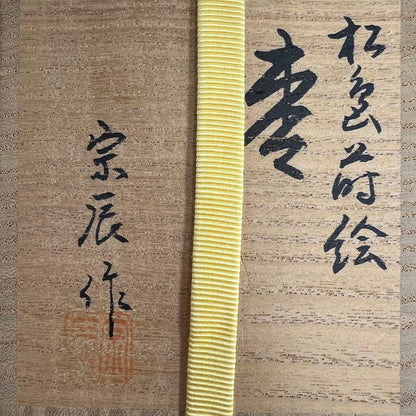 松島蒔絵
棗
宗辰作